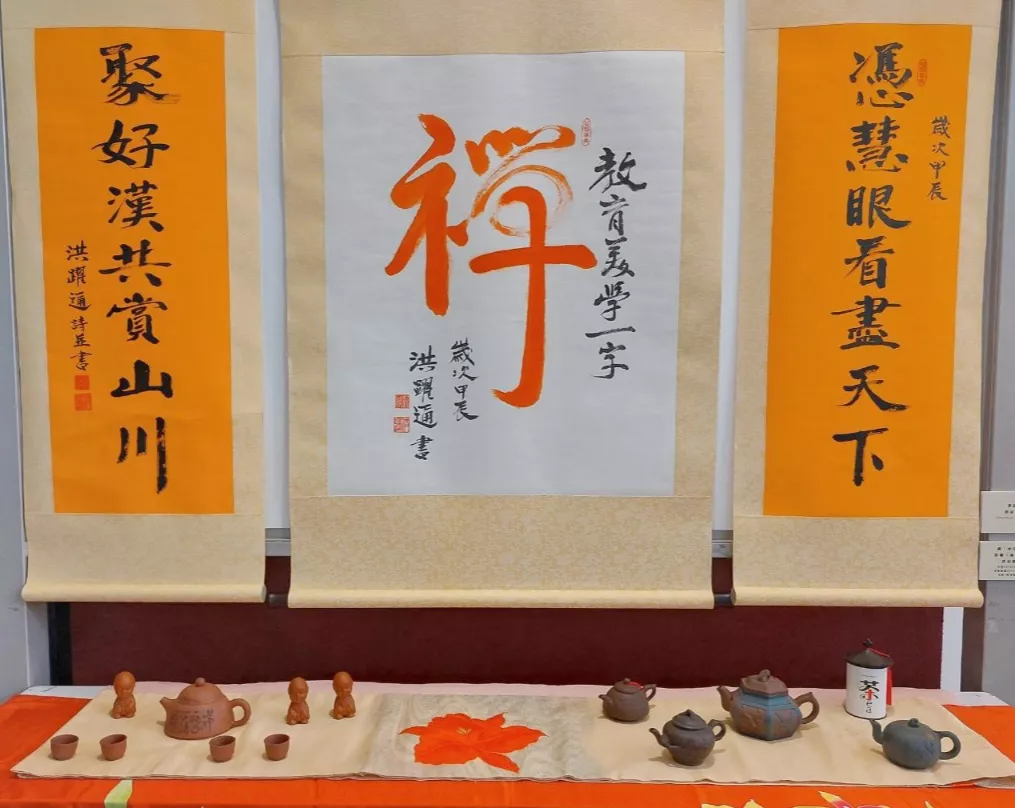 憑慧眼看盡天下
歲次甲辰
禪
教育美學一字
歲次甲辰
洪躍通書
聚好漢共賞山川
洪躍通詩並書
茶